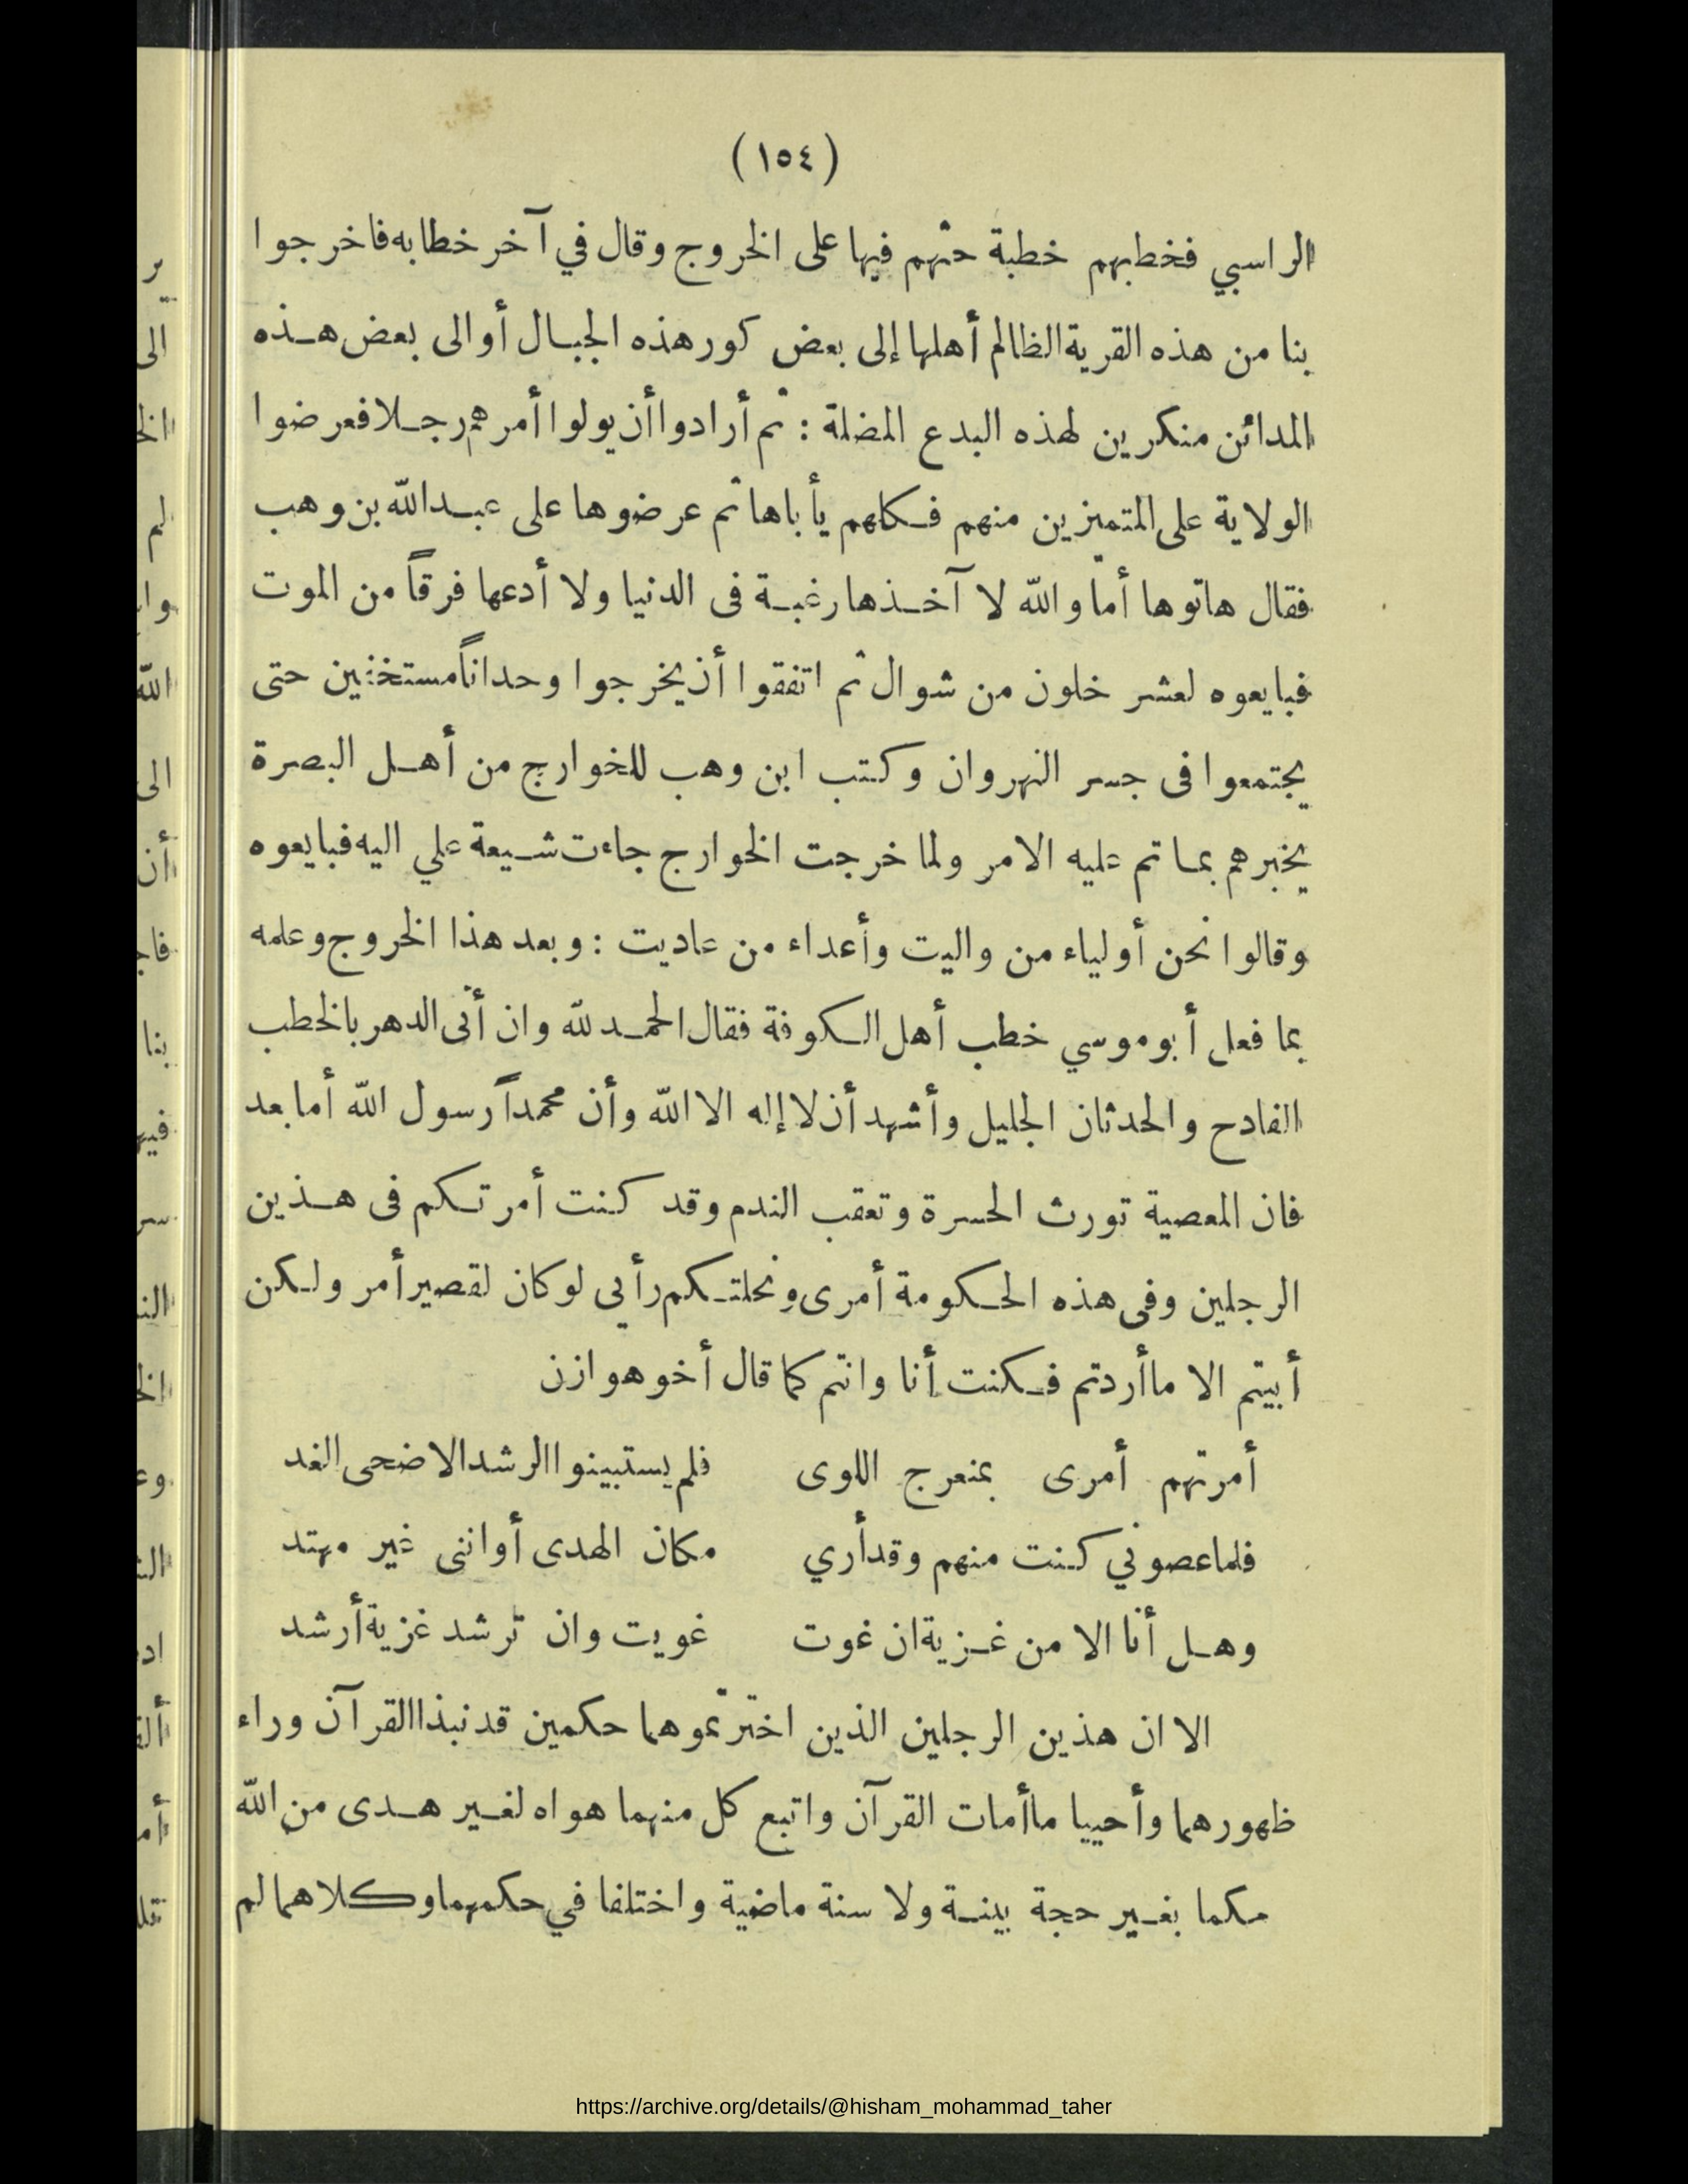 (١٥٤)
الراسبي فخطبهم خطبة حثهم فيها على الخروج وقال في آخر خطابه فاخرجوا
بنا من هذه القرية الظالم أهلها إلى بعض كور هذه الجبال أو الى بعض هذه
المدائن منكرين لهذه البدع المضلة : ثم أرادوا أن يولوا أمرهم رجلا فعرضوا
الولاية على المتميزين منهم فكلهم يأباها ثم عرضوها على عبد الله بن وهب
فقال هاتوها أما والله لا آخذها رغبة فى الدنيا ولا أدعها فرقاً من الموت
فبايعوه لعشر خلون من شوال ثم اتفقوا أن يخرجوا وحداناً مستخفين حتى
يجتمعوا فى جسر النهروان وكتب ابن وهب للخوارج من أهل البصرة
يخبرهم بما تم عليه الامر ولما خرجت الخوارج جاءت شيعة علي اليه فبايعوه
وقالوا نحن أولياء من واليت وأعداء من عاديت : وبعد هذا الخروج وعلمه
بما فعل أبو موسي خطب أهل الكوفة فقال الحمد لله وان أتى الدهر بالخطب
الفادح والحدثان الجليل وأشهد أن لا إله الا الله وأن محمداً رسول الله أما بعد
فان المعصية تورث الحسرة وتعقب الندم وقد كنت أمرتكم فى هذين
الرجلين وفى هذه الحكومة أمرى ونحلتكم رأيى لو كان لقصير أمر ولكن
أبيتم الا ما أردتم فكنت أنا وانتم كما قال أخو هوازن
أمرتهم أمرى بمنعرج اللوى فلم يستبينوا الرشد الا ضحى الغد
فلما عصوني كنت منهم وقد أري مكان الهدى أو اننى غير مهتد
وهل أنا الا من غزية ان غوت غويت وان ترشد غزية أرشد
الا ان هذين الرجلين الذين اخترتموهما حكمين قد نبذا القرآن وراء
ظهورهما وأحييا ما أمات القرآن واتبع كل منهما هواه لغير هدى من الله
حكما بغير حجة بينة ولا سنة ماضية واختلفا في حكمهما وكلاهما لم
https://archive.org/details/@hisham_mohammad_taher